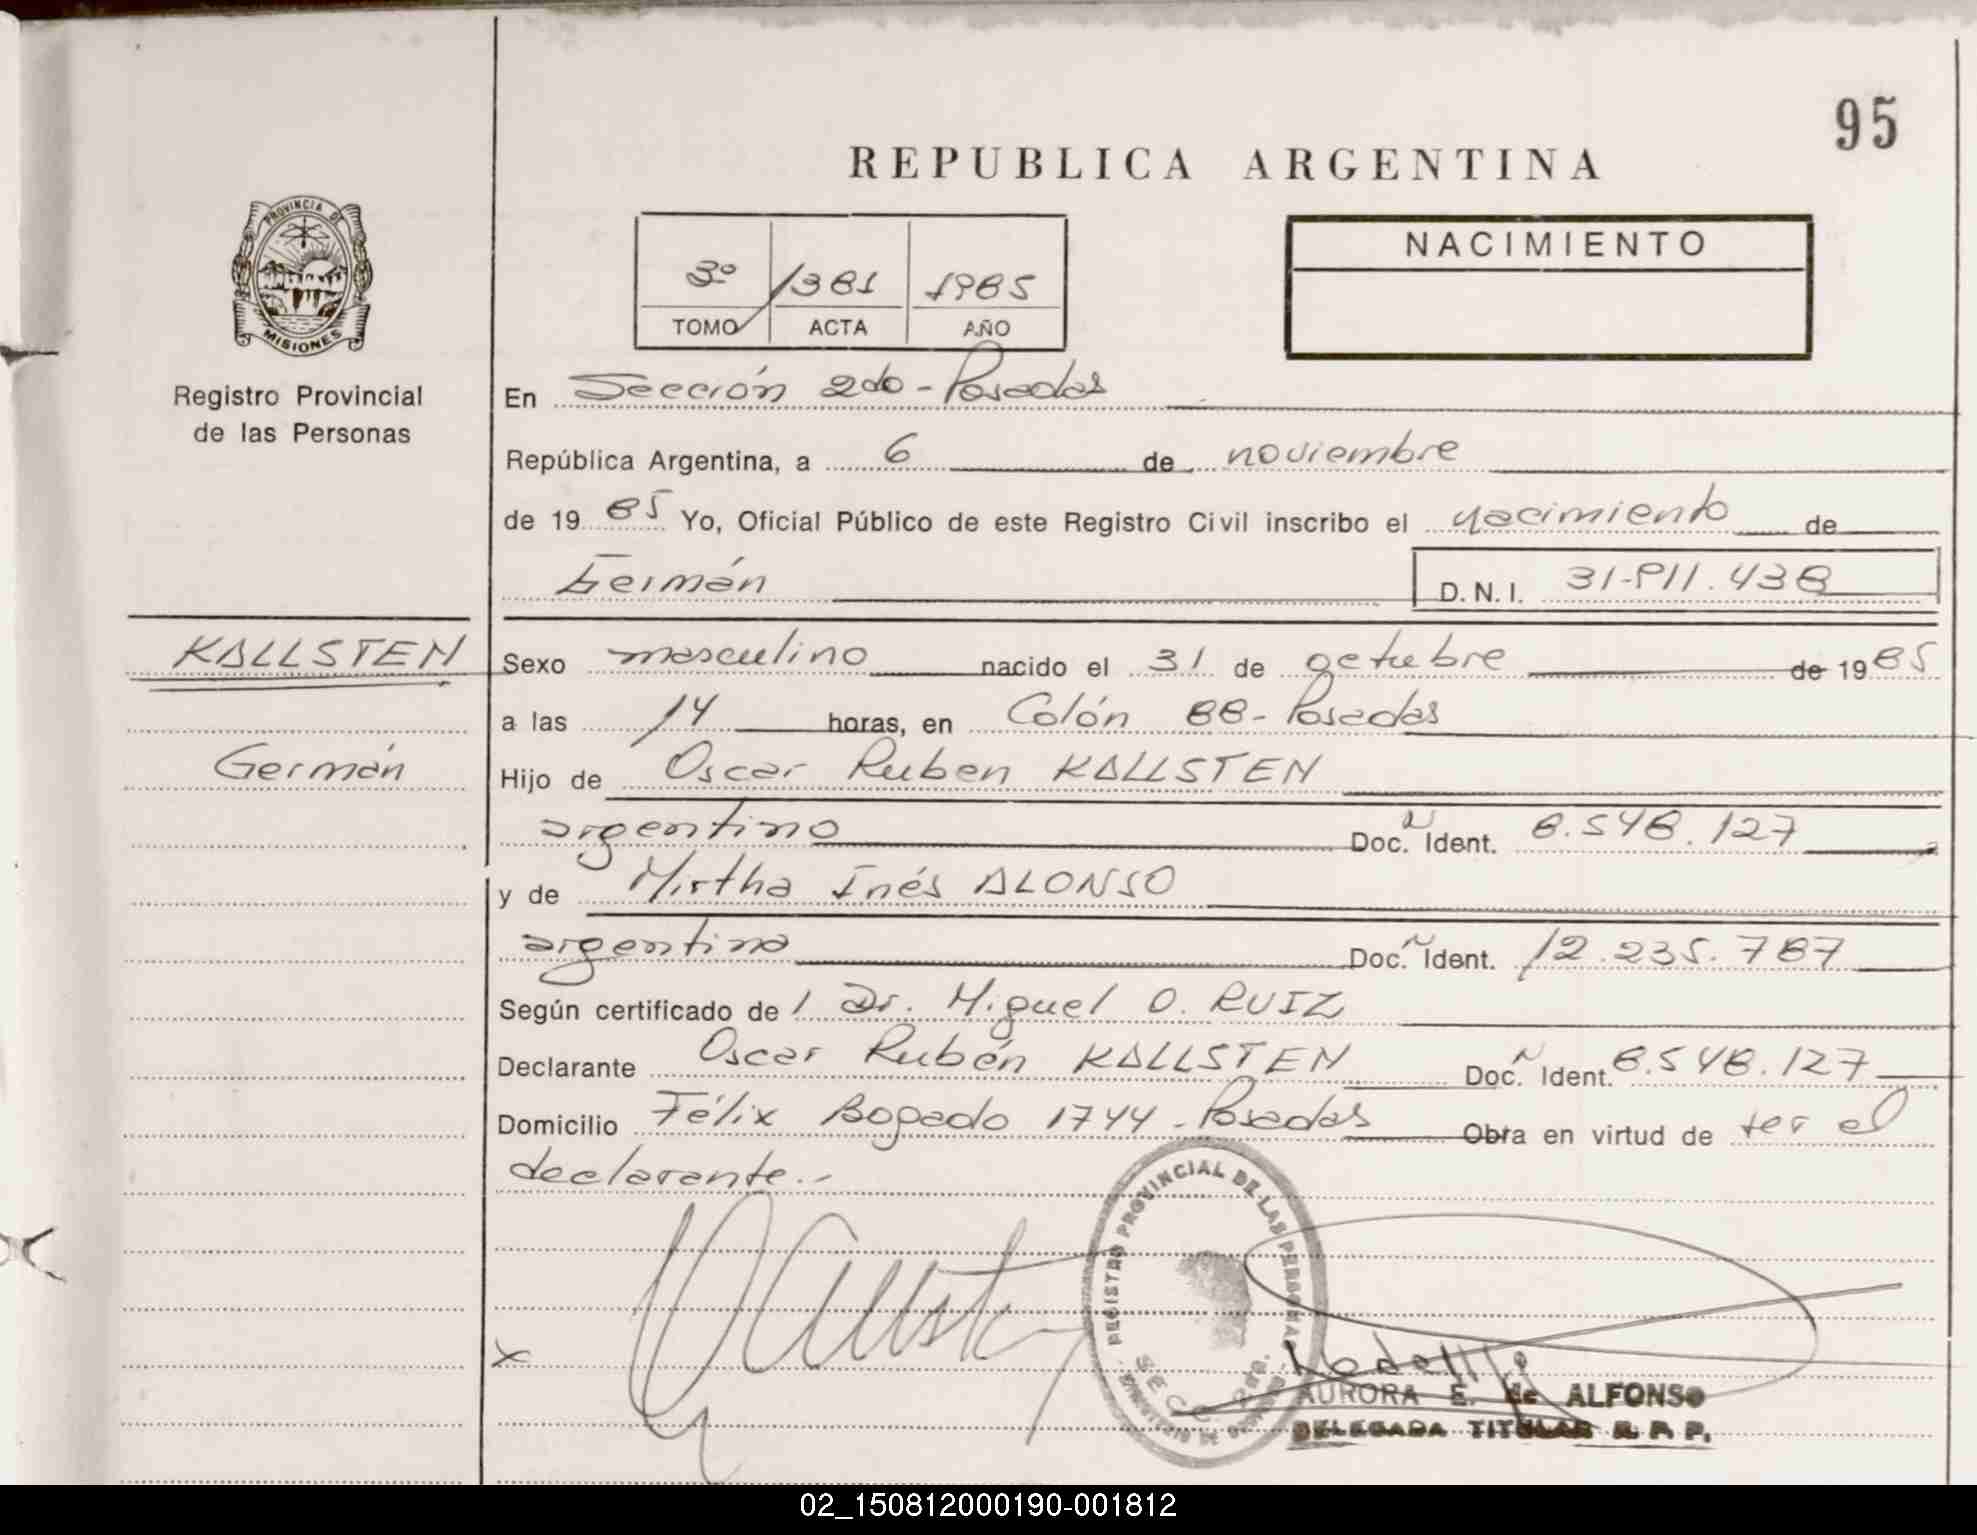 95
REPUBLICA ARGENTINA
PROVINCIA DE
MISIONES
Registro Provincial
de las Personas
3º 1381 1985
TOMO ACTA AÑO
NACIMIENTO
En Sección 2do - Posadas
República Argentina, a 6 de noviembre
de 1985 Yo, Oficial Público de este Registro Civil inscribo el nacimiento de
Germán D.N.I. 31-911.438
KALLSTEN
Germán
Sexo masculino nacido el 31 de octubre de 1985
a las 14 horas, en Colón 88 - Posadas
Hijo de Oscar Ruben KALLSTEN
argentino Doc. Ident. 8.548.127
y de Mirtha Inés ALONSO
argentina Doc. Ident. 12.235.787
Según certificado de l Dr. Miguel O. RUIZ
Declarante Oscar Rubén KALLSTEN Doc. Ident. 8.548.127
Domicilio Félix Bogado 1744 - Posadas Obra en virtud de ser el
declarante.-
REGISTRO PROVINCIAL DE LAS PERSONAS
x
AURORA E. de ALFONSO
DELEGADA TITULAR R. P. P.
02_150812000190-001812